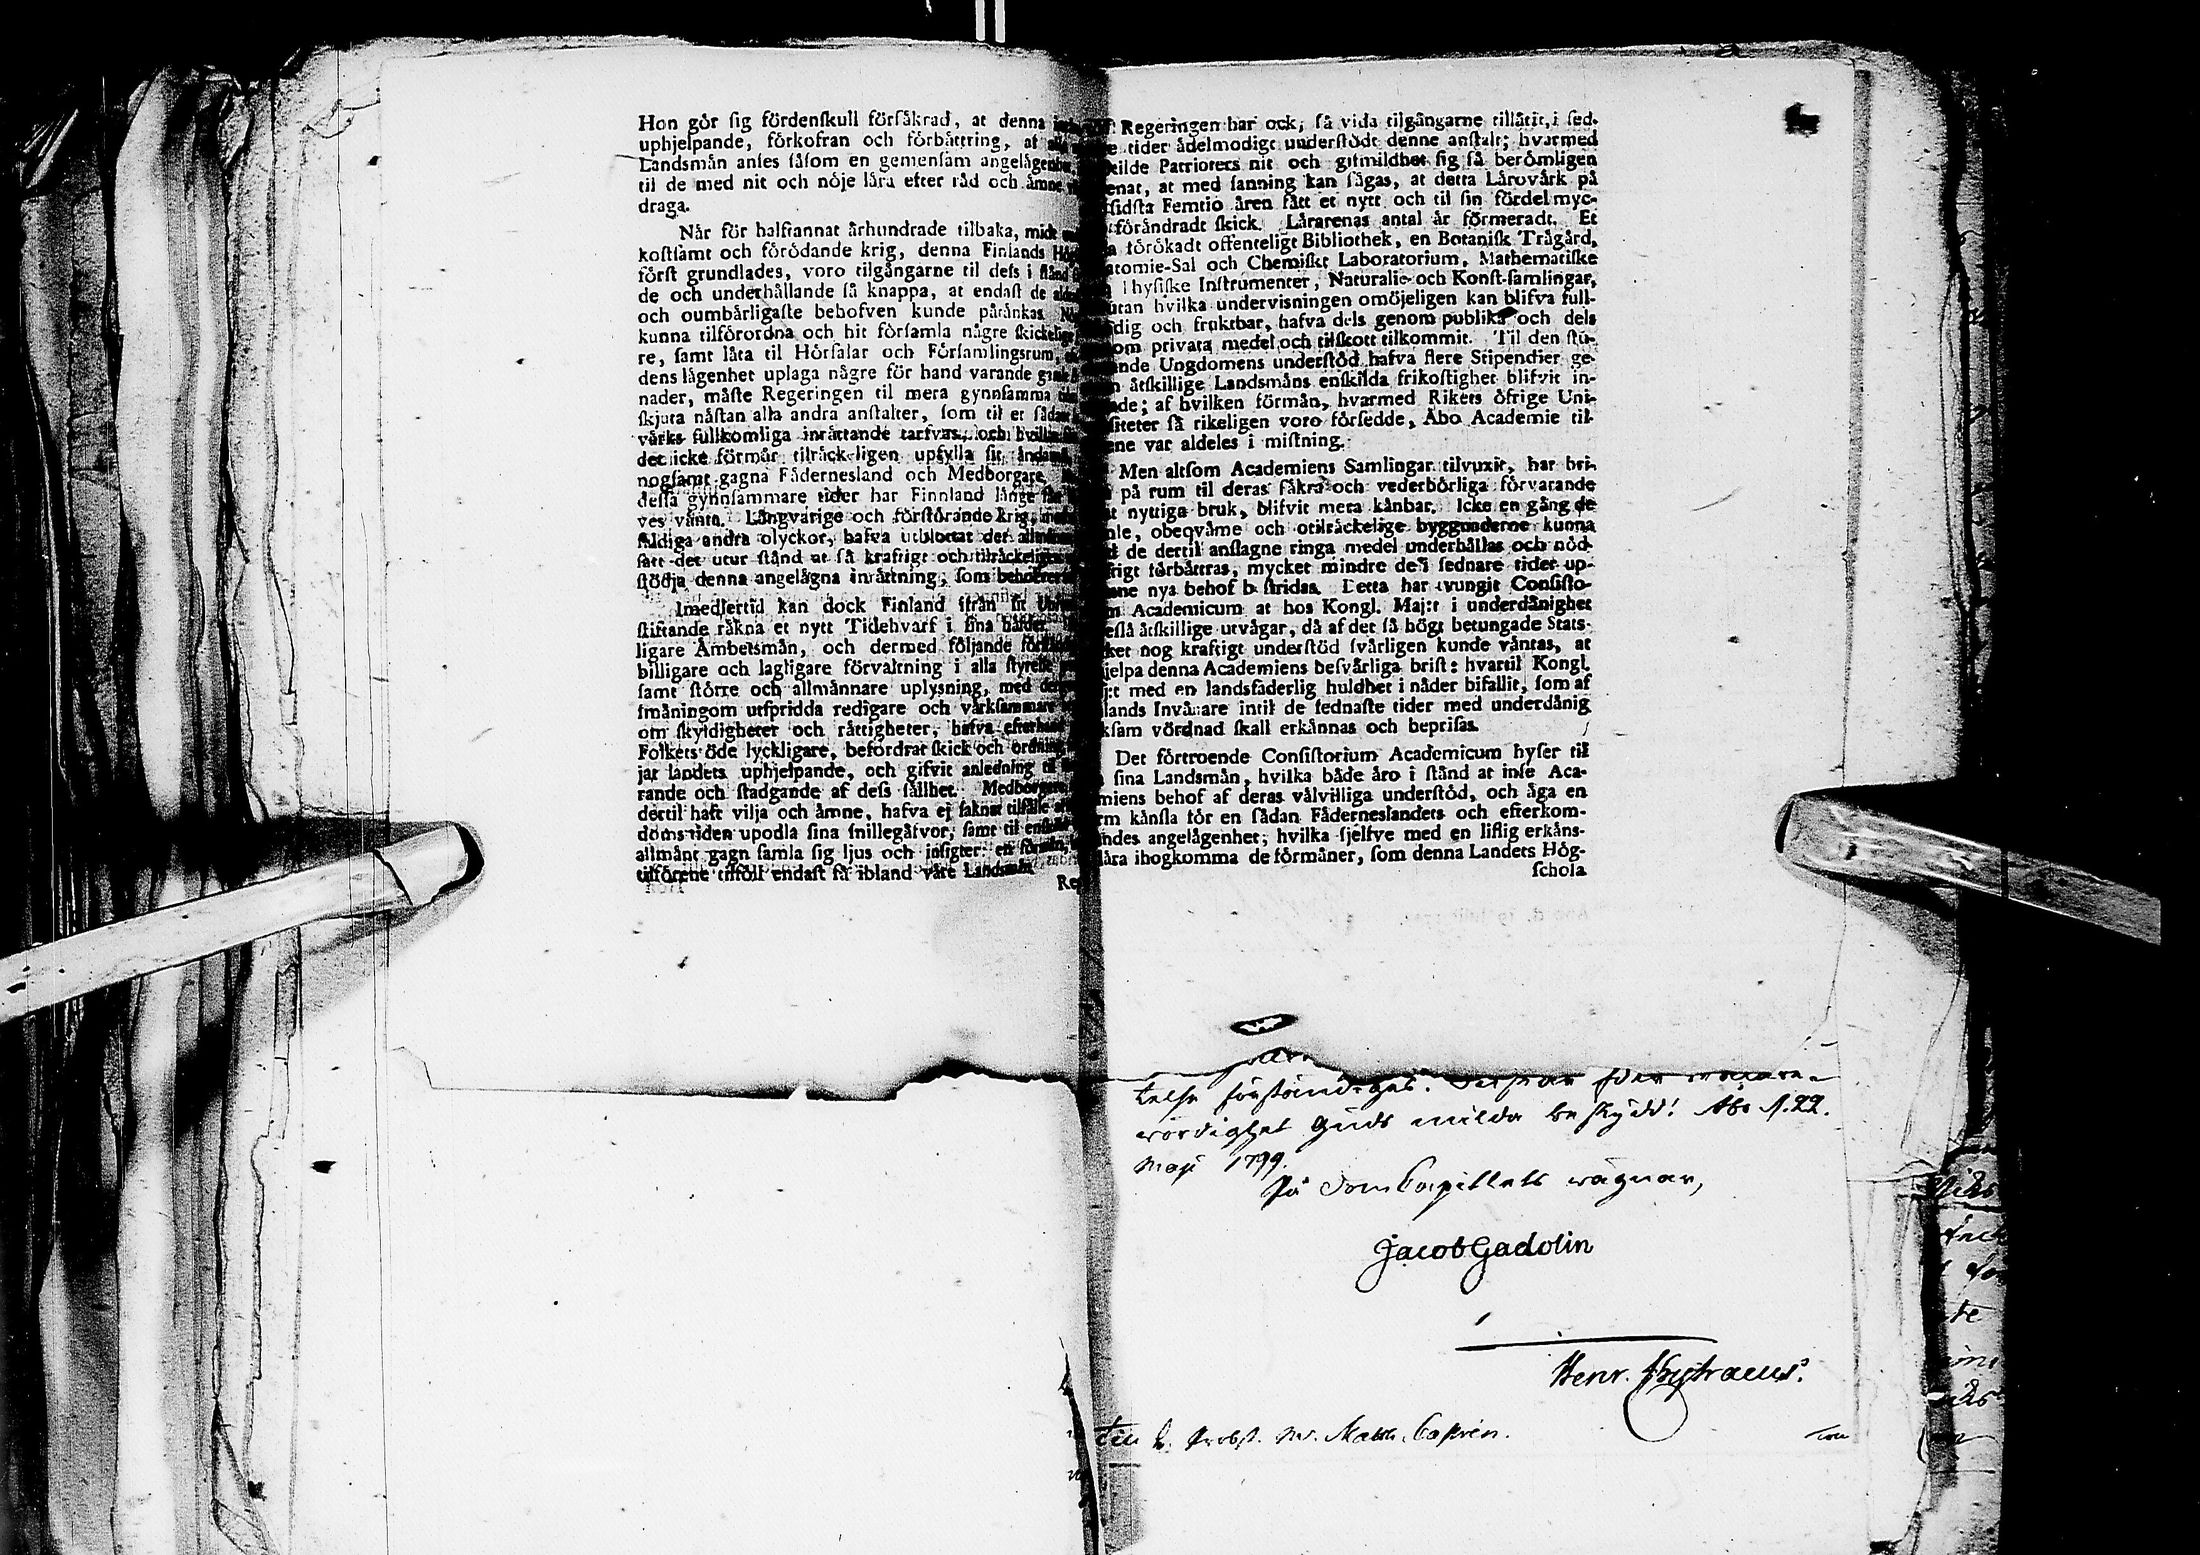 Hon gör sig fördenskull försäkrad, at denna
uphjelpande, förkofran och förbättring, af
Landsmän anses såsom en gemensam angelägenhet,
til de med nit och nöje lära efter råd och ämne
draga.
När för halfannat århundrade tilbaka, midt
kostsamt och förödande krig, denna Finlands Hög
först grundlades, voro tilgångarne til dess i stånd
de och underhållande så knappa, at endast de
och oumbärligaste behofven kunde påtänkas.
kunna tilförordna och hit församla någre skickelige
re, samt låta til Hörsalar och Församlingsrum,
dens lägenhet uplaga någre för hand varande
nader, måste Regeringen til mera gynnsamma
skjuta nästan alla andra anstalter, som til et sådant
värks fullkomliga inrättande tarfvas, och hvilka
det icke förmår tilräckeligen upfylla sit ändamål,
nogsamt gagna Fädernesland och Medborgare.
dessa gynnsammare tider har Finnland länge
ves vänta. Långvarige och förstörande krig,
fäldiga andra olyckor, hafva utblottat det
satt det utur stånd at så kraftigt och tilräckeligen
stödja denna angelägna inrättning, som behofvet
Imedlertid kan dock Finland ifrån sit
stiftande räkna et nytt Tidehvarf i sina häfder.
ligare Ämbetsmän, och dermed följande
billigare och lagligare förvaltning i alla styrelse
samt större och allmännare uplysning, med
småningom utspridda redigare och värksammare
om skyldigheter och rättigheter, hafva efterhand
Folkets öde lyckligare, befordrat skick och ordning,
jat landets uphjelpande, och gifvit anledning til
rande och stadgande af dess sällhet. Medborgare,
dertil haft vilja och ämne, hafva ej saknat tilfälle
doms tiden upodla sina snillegåfvor, samt til enskildt
allmänt gagn samla sig ljus och insigter: en förmån,
tilförene tilföll endast få ibland våre Landsmän.
Re
Regeringen har ock, så vida tilgångarne tillåtit, i sed-
tider ädelmodigt understödt denne anstalt; hvarmed
skilde Patrioters nit och gifmildhet sig så berömligen
enat, at med sanning kan sägas, at detta Lärovärk på
sidsta Femtio åren fått et nytt och til sin fördel myc-
förändradt skick. Lärarenas antal är förmeradt. Et
förökadt offenteligt Bibliothek, en Botanisk Trägård,
atomie-Sal och Chemiskt Laboratorium, Mathematiske
Physiske Instrumenter, Naturalie- och Konst-samlingar,
utan hvilka undervisningen omöjeligen kan blifva full-
dig och fruktbar, hafva dels genom publika och dels
om privata medel och tilskott tilkommit. Til den stu-
ande Ungdomens understöd hafva flere Stipendier ge-
åtskillige Landsmäns enskilda frikostighet blifvit in-
de; af hvilken förmån, hvarmed Rikets öfrige Uni-
siteter så rikeligen voro försedde, Åbo Academie til-
ene var aldeles i mistning.
Men altsom Academiens Samlingar tilvuxit, har bri-
på rum til deras säkra och vederbörliga förvarande
nyttiga bruk, blifvit mera känbar. Icke en gång de
le, obeqväme och otilräckelige byggnaderne kunna
de dertil anslagne ringa medel underhållas och nöd-
rigt förbättras, mycket mindre de i sednare tider up-
ne nya behof bestridas. Detta har tvungit Consisto-
Academicum at hos Kongl. Maj:t i underdånighet
eslå åtskillige utvägar, då af det så högt betungade Stats-
ket nog kraftigt understöd svårligen kunde väntas, at
jelpa denna Academiens besvärliga brist: hvartil Kongl.
j:t med en landsfaderlig huldhet i nåder bifallit, som af
lands Invånare intil de sednaste tider med underdånig
ksam vördnad skall erkännas och beprisas.
Det förtroende Consistorium Academicum hyser til
sina Landsmän, hvilka både äro i stånd at inse Aca-
miens behof af deras välvilliga understöd, och äga en
rm känsla för en sådan Fäderneslandets och efterkom-
andes angelägenhet; hvilka sjelfve med en liflig erkäns-
lära ihogkomma de förmåner, som denna Landets Hög-
schola
telse
wördighet Guds milda beskydd! Åbo d. 22.
Maji 1799.
På DomCapitlets wägnar,
Jacob Gadolin
Henr.
Till h. Probst. M. Matth. Castrén.